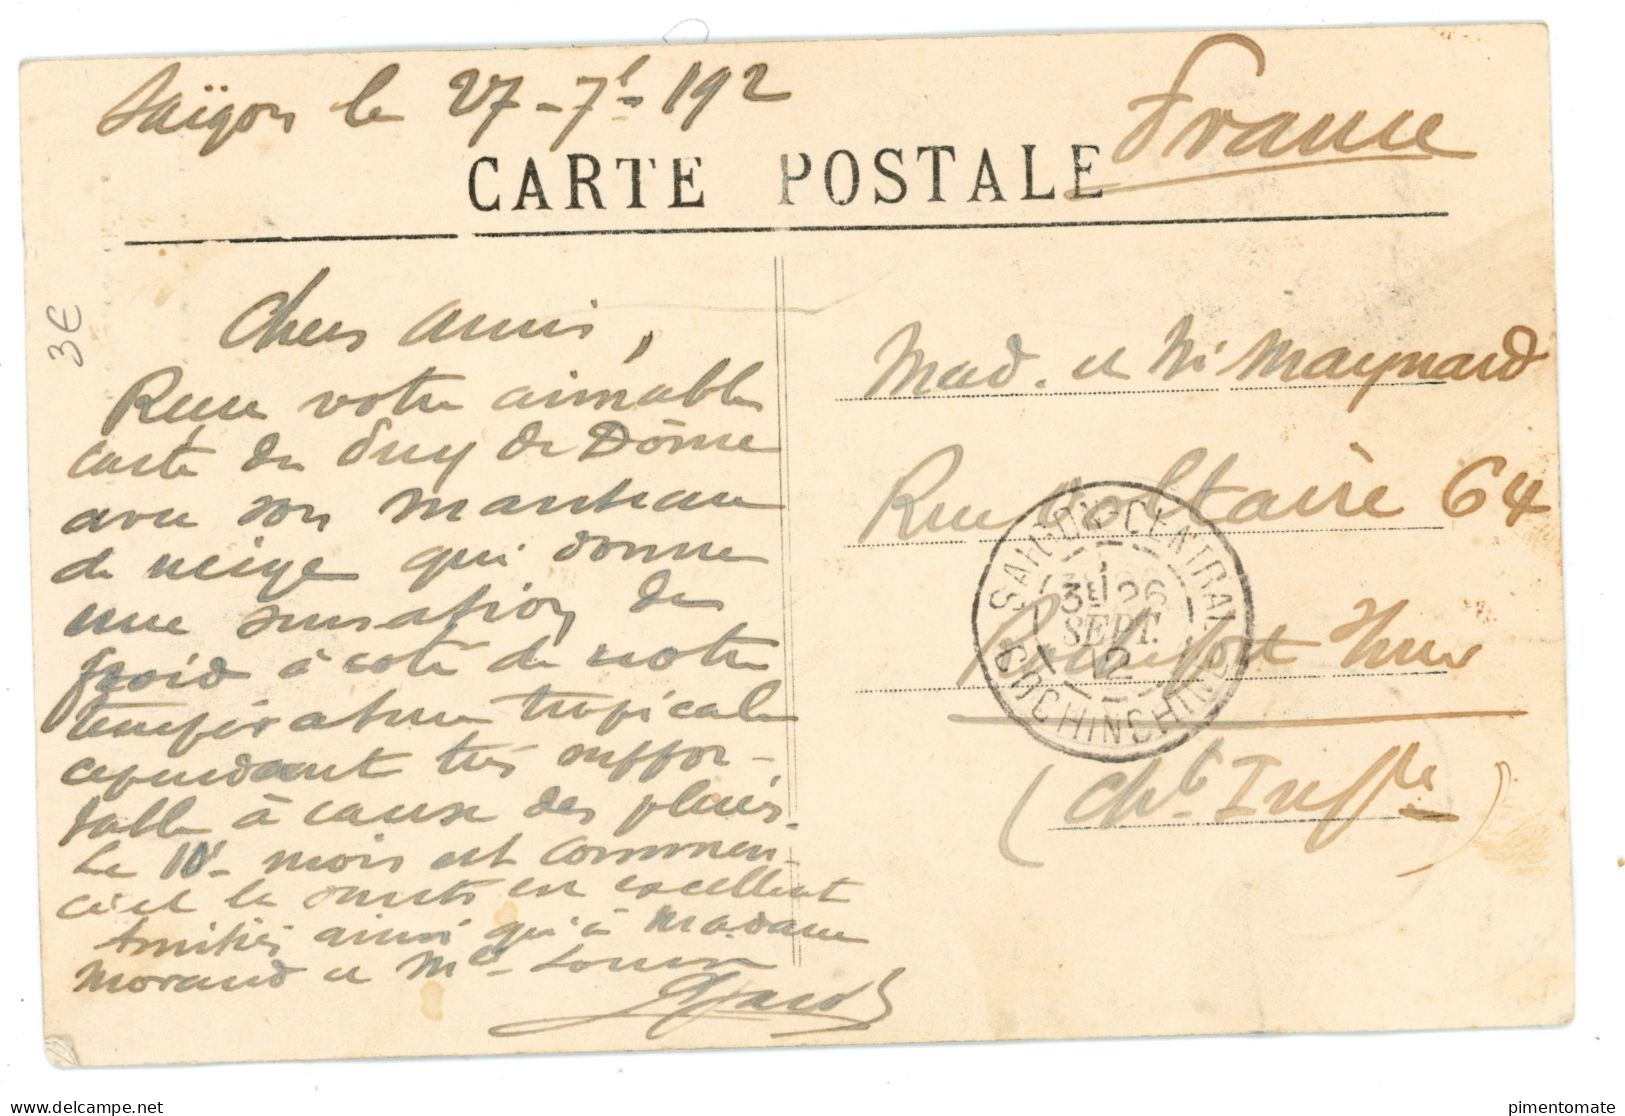 Saïgon le 27-7<sup>b</sup>- 192
France
CARTE POSTALE
3€
Chers amis,
Reçu votre aimable
carte du Puy de Dôme
avec son manteau
de neige qui donne
une sensation de
froid à coté de notre
température tropicale
cependant très suppor-
table à cause des pluies.
Le 10<sup>e</sup> mois est commen-
cé et la santé en excellent
Amitiés ainsi qu'à Madame
Morand et M<sup>elle</sup>
Mad. et Mr Maynard
Rue Voltaire 64
Rochefort s/mer
(Ch<sup>te</sup> Inf<sup>re</sup>)
SAIGON-CENTRAL
3E 26
SEPT.
12
COCHINCHINE
pimentomate